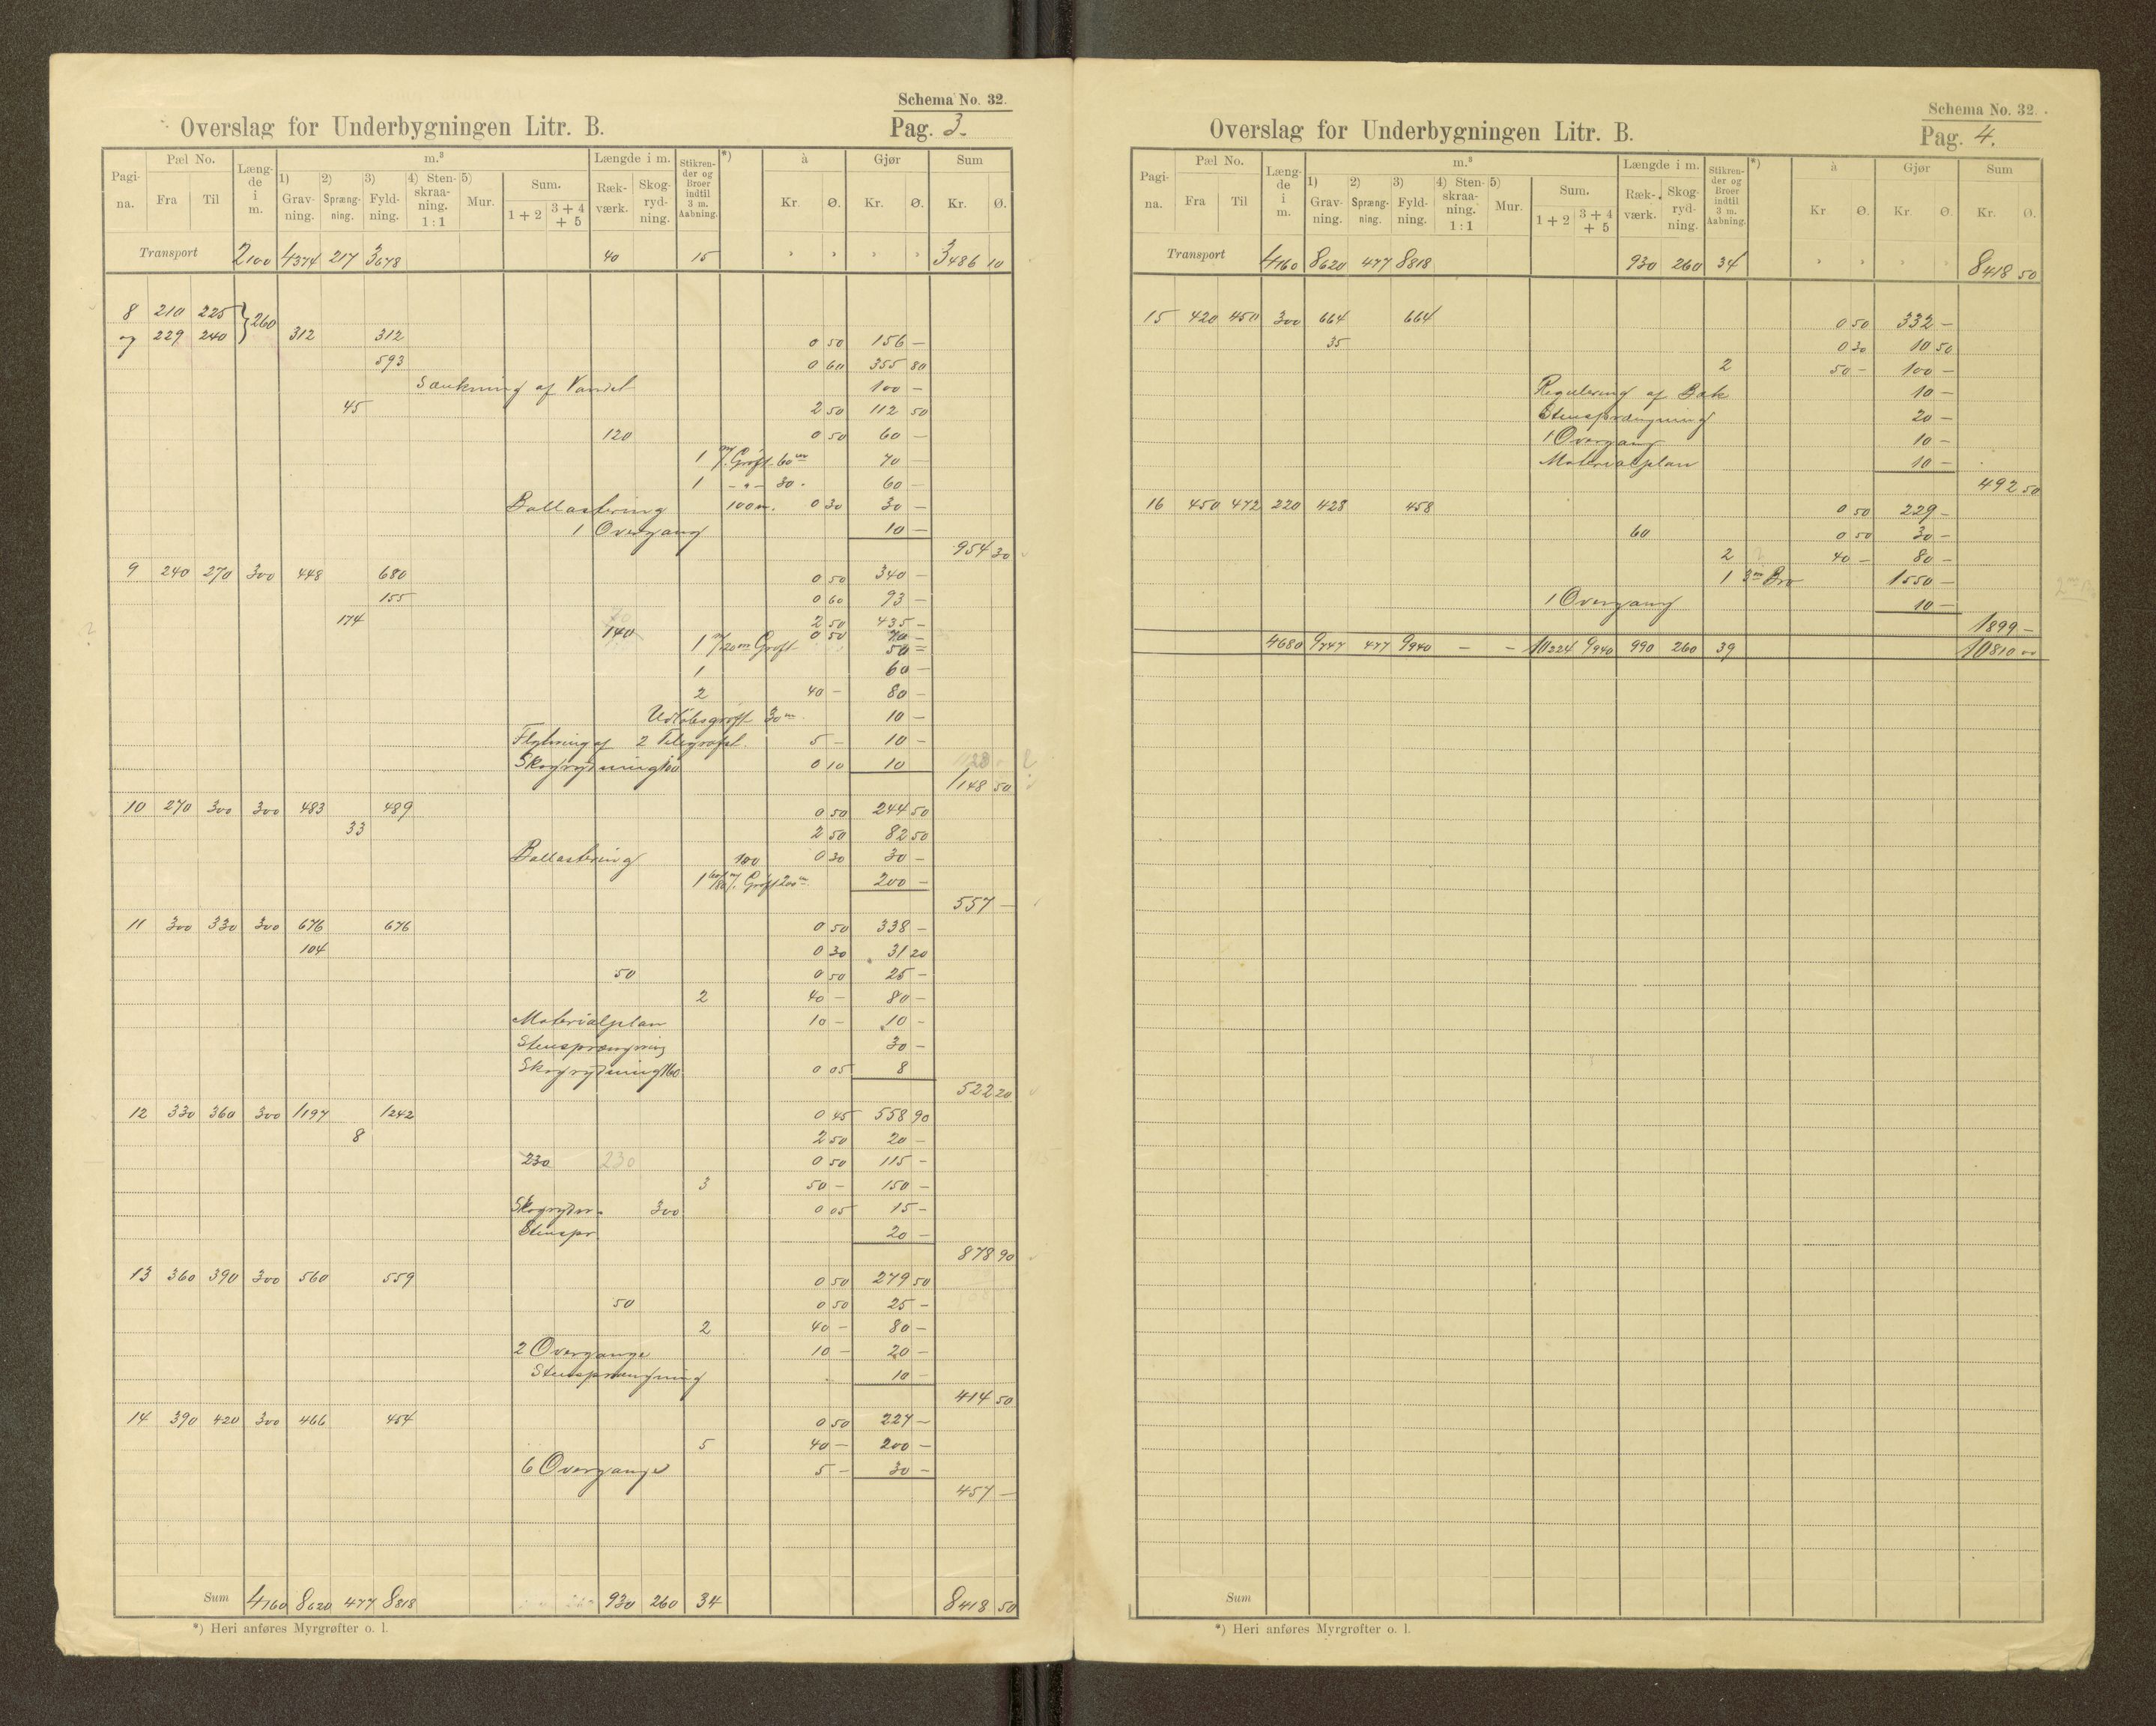 Schema No. 32.
Overslag for Underbygningen Litr. B. Pag. 3.
Pagina. Pæl No. Fra Til Længde i m. m.³ 1) Gravning. 2) Sprængning. 3) Fyldning. 4) Stenskraaning. 1:1 5) Mur. Sum. 1+2 3+4+5 Længde i m. Rækværk. Skogrydning. Stikrender og Broer indtil 3 m. Aabning. *) à Kr. Ø. Gjør Kr. Ø. Sum Kr. Ø.
Transport 2100 4374 217 3678 40 15 " " " " 3486 10
8 210 225 } 260
og 229 240 312 312 0 50 156 –
593 0 60 355 80
Sænkning af Vandet 100 –
45 2 50 112 50
120 0 50 60 –
1 m/. Grøft 60 m 70 –
1 – " – 30 " 60 –
Ballastering 100 m. 0 30 30 –
1 Overgang 10 –
954 30
9 240 270 300 448 680 0 50 340 –
155 0 60 93 –
174 2 50 435 –
140 0 50 70 –
1 m/20 m Grøft 50 =
1 60 –
2 40 – 80 –
Udløbsgrøft 30 m 10 –
Flytning af 2 Telegrafst. 5 – 10 –
Skogrydning 100 0 10 10
1148 50
10 270 300 300 483 489 0 50 244 50
33 2 50 82 50
Ballastering 100 0 30 30 –
1 m/. Grøft 200 m 200 –
557 –
11 300 330 300 676 676 0 50 338 –
104 0 30 31 20
50 0 50 25 –
2 40 – 80 –
Materialplan 10 – 10 –
Stensprængning 30 –
Skogrydning 160 0 05 8
522 20
12 330 360 300 1197 1242 0 45 558 90
8 2 50 20 –
230 230 0 50 115 –
3 50 – 150 –
Skogrydn. 300 0 05 15 –
Stenspr. 20 –
878 90
13 360 390 300 560 559 0 50 279 50
50 0 50 25 –
2 40 – 80 –
2 Overgange 10 – 20 –
Stensprængning 10 –
414 50
14 390 420 300 466 454 0 50 227 –
5 40 – 200 –
6 Overganger 5 – 30 –
457 –
Sum 4160 8620 477 8818 930 260 34 8418 50
*) Heri anføres Myrgrøfter o. l.
Schema No. 32.
Overslag for Underbygningen Litr. B. Pag. 4.
Pagina. Pæl No. Fra Til Længde i m. m.³ 1) Gravning. 2) Sprængning. 3) Fyldning. 4) Stenskraaning. 1:1 5) Mur. Sum. 1+2 3+4+5 Længde i m. Rækværk. Skogrydning. Stikrender og Broer indtil 3 m. Aabning. *) à Kr. Ø. Gjør Kr. Ø. Sum Kr. Ø.
Transport 4160 8620 477 8818 930 260 34 " " " " 8418 50
15 420 450 300 664 664 0 50 332 –
35 0 30 10 50
2 50 – 100 –
Regulering af Bæk 10 –
Stensprængning 20 –
1 Overgang 10 –
Materialplan 10 –
492 50
16 450 472 220 428 458 0 50 229 –
60 0 50 30 –
2 40 – 80 –
1 3 m Bro 1550 –
1 Overgang 10 –
1899 –
4680 9747 477 9940 – – 10224 9940 990 260 39 10810 00
Sum
*) Heri anføres Myrgrøfter o. l.